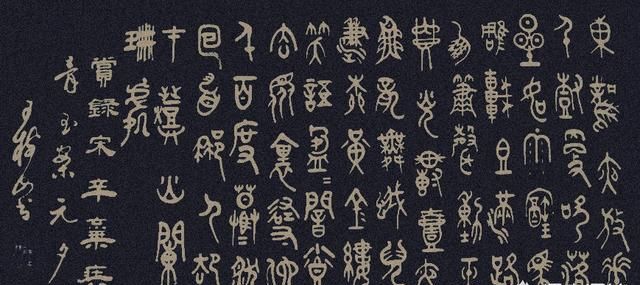 東風夜放華
千樹更吹落
星如雨寶馬
雕車香滿路
鳳簫聲動玉
壺光轉壹夜
魚龍舞蛾兒
雪柳黃金縷
笑語盈盈暗香
去眾裏尋他
千百度驀然
回首那人卻
在燈火闌
珊處
嘗錄宋辛棄疾
青玉案元夕